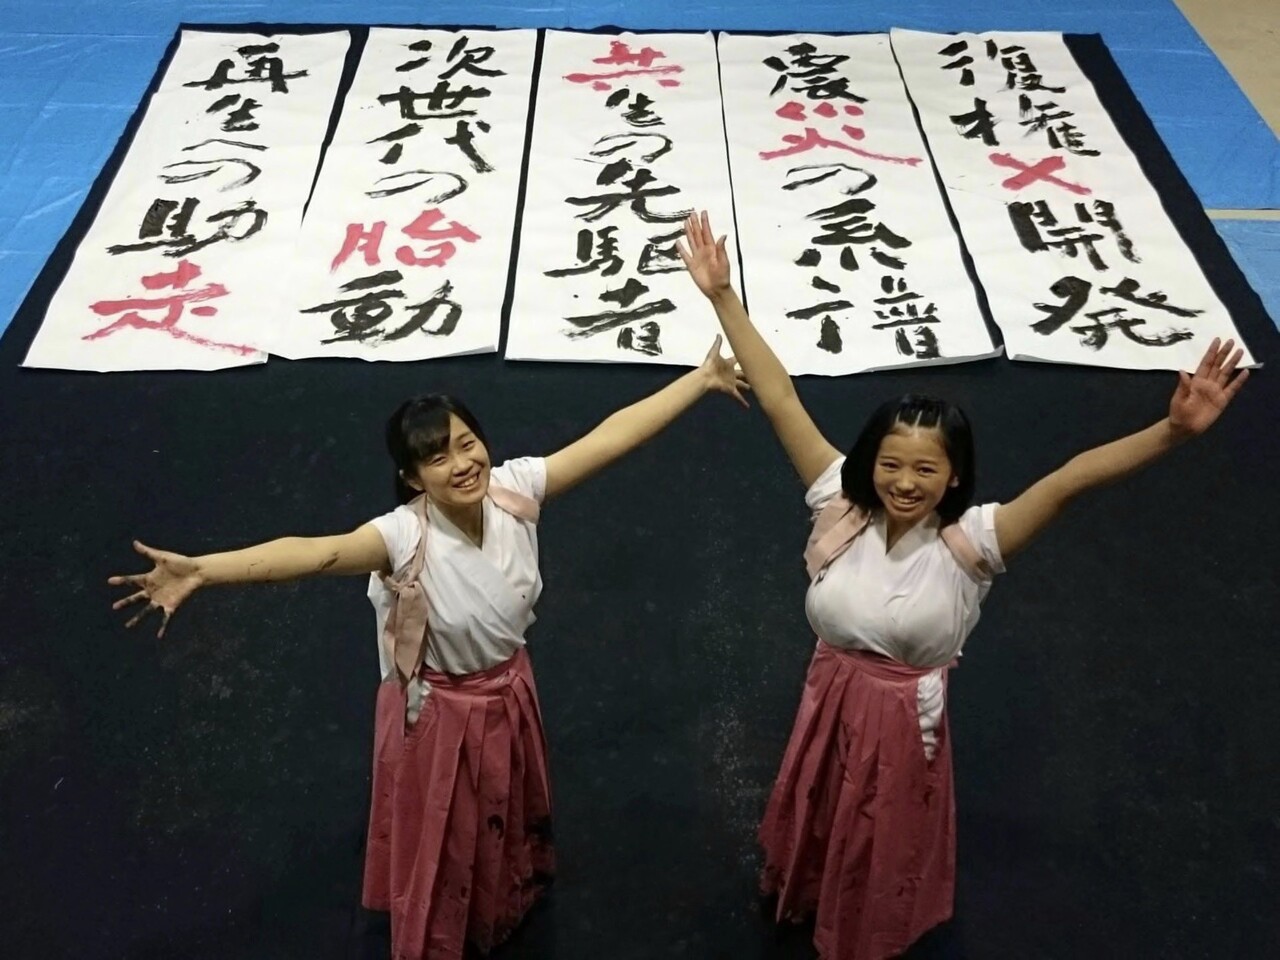 復権×開発
震災の系譜
共生の先駆者
次世代の胎動
再生への助走